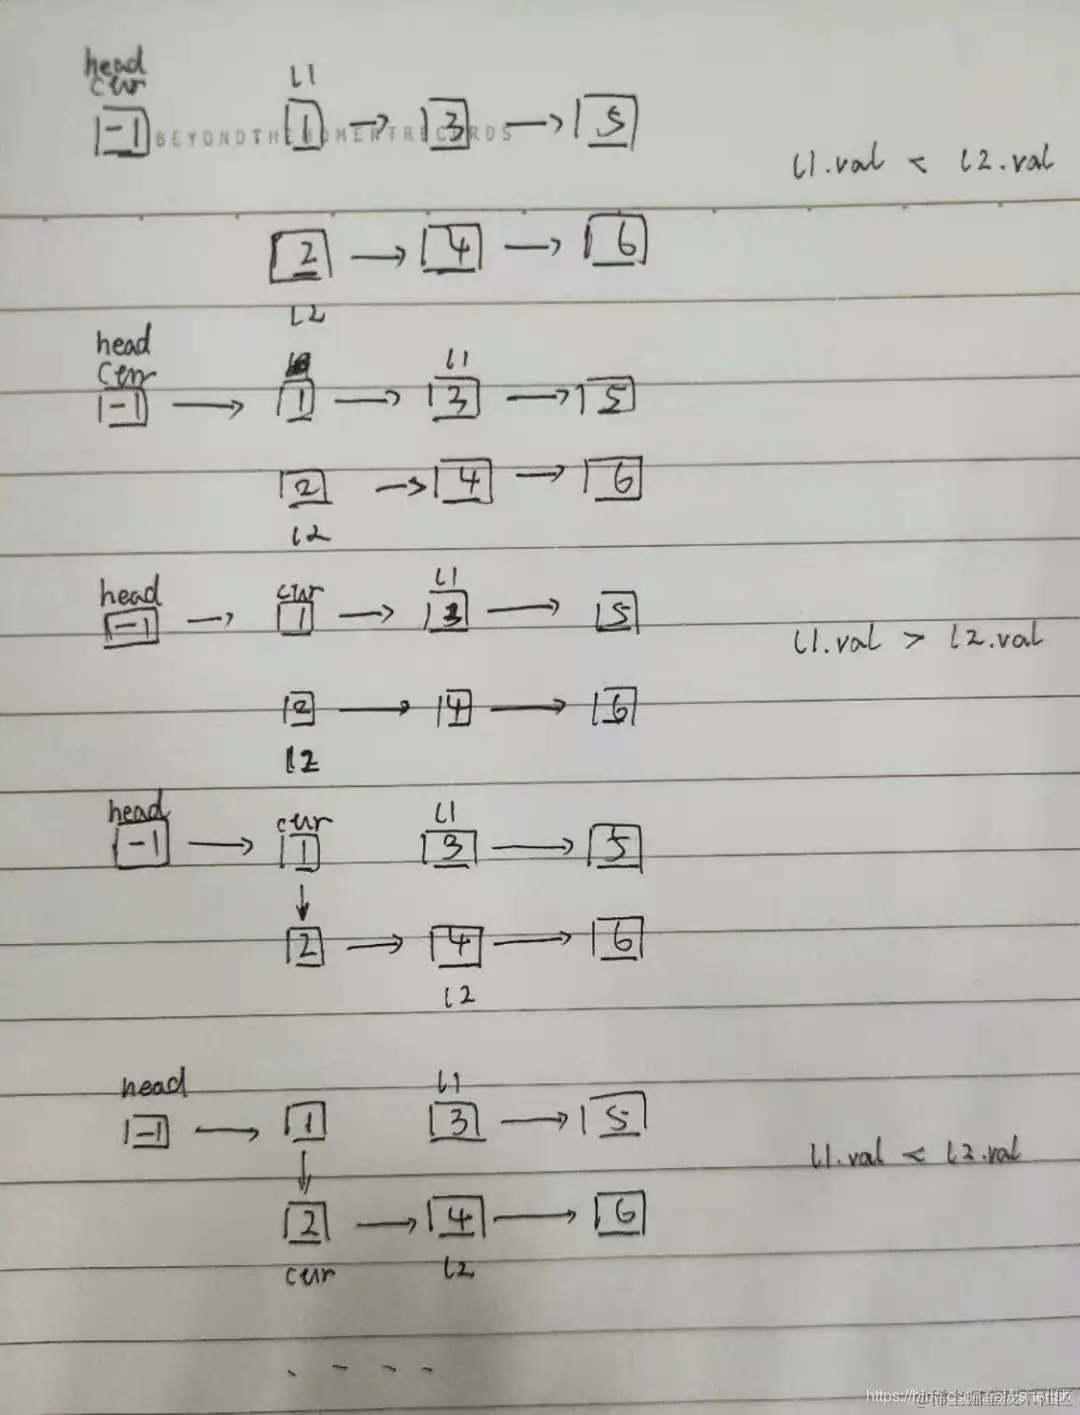 head
cur
l1
-1 1 → 3 → 5
BEYONDTHEMOMENTRECORDS
l1.val < l2.val
2 → 4 → 6
l2
head
cur
l1
-1 → 1 → 3 → 5
2 → 4 → 6
l2
head cur l1
-1 → 1 → 3 → 5
l1.val > l2.val
2 → 4 → 6
l2
head cur l1
-1 → 1 3 → 5
↓
2 → 4 → 6
l2
head l1
-1 → 1 3 → 5
l1.val < l2.val
↓
2 → 4 → 6
cur l2
@稀土掘金技术社区